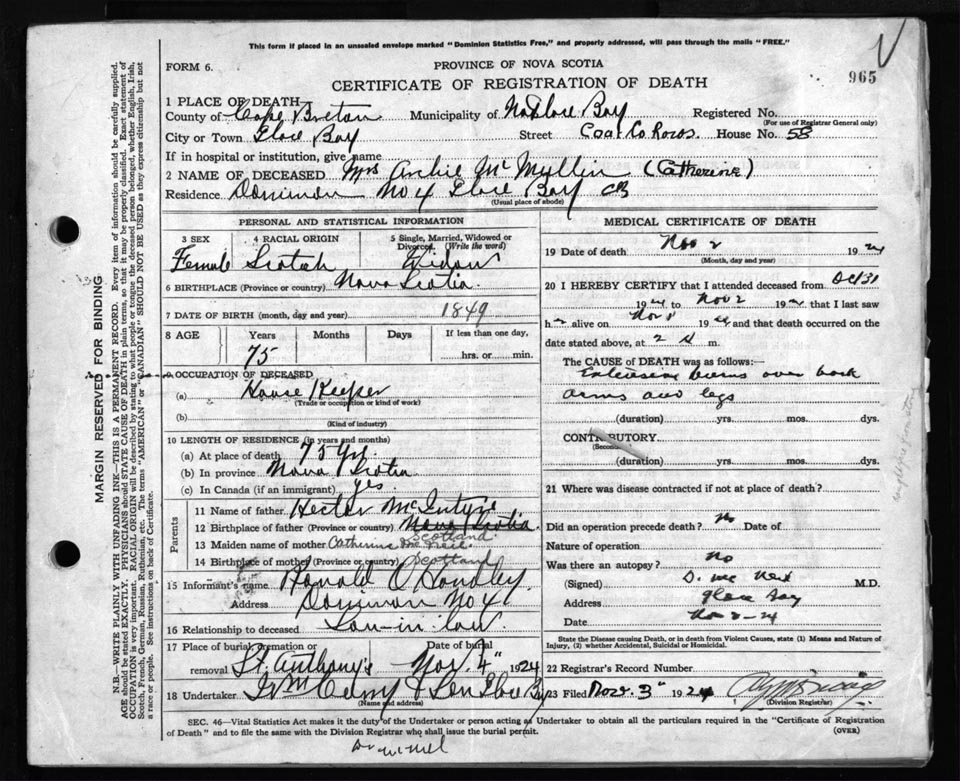 This form if placed in an unsealed envelope marked "Dominion Statistics Free," and properly addressed, will pass through the mails "FREE."
FORM 6.
PROVINCE OF NOVA SCOTIA
965
CERTIFICATE OF REGISTRATION OF DEATH
1 PLACE OF DEATH
County of Cape Breton Municipality of Bay Registered No.
(For use of Registrar General only)
City or Town Glace Bay Street Coal Co Rows. House No. 58
If in hospital or institution, give name
2 NAME OF DECEASED Mrs Archie McMullin (Catherine)
Residence Dominion No 4 Glace Bay CB
(Usual place of abode)
PERSONAL AND STATISTICAL INFORMATION
3 SEX 4 RACIAL ORIGIN 5 Single, Married, Widowed or Divorced. (Write the word)
Female Scotch Widow
6 BIRTHPLACE (Province or country) Nova Scotia
7 DATE OF BIRTH (month, day and year) 1849
8 AGE Years Months Days If less than one day,
75 hrs. or min.
9 OCCUPATION OF DECEASED
(a) House Keeper
(Trade or occupation or kind of work)
(b)
(Kind of industry)
10 LENGTH OF RESIDENCE (in years and months)
(a) At place of death 75 yrs
(b) In province Nova Scotia
(c) In Canada (if an immigrant) yes
Parents
11 Name of father Hector McIntyre
12 Birthplace of father (Province or country) Nova Scotia Scotland
13 Maiden name of mother Catherine McNeil
14 Birthplace of mother (Province or country) Scotland
15 Informant's name Ronald O Handley
Address Dominion No 4
16 Relationship to deceased Son-in-law
17 Place of burial, cremation or removal St. Anthony's Date of burial Nov. 4" 1924
18 Undertaker & Son Glace Bay
(Name and address)
MEDICAL CERTIFICATE OF DEATH
19 Date of death Nov 2 1924
(Month, day and year)
20 I HEREBY CERTIFY that I attended deceased from Oct 31
1924 to Nov 2 1924 that I last saw
h alive on Nov 1 1924 and that death occurred on
date stated above, at 2 m.
The CAUSE OF DEATH was as follows:—
Extensive burns over back
arms and legs
(duration) yrs. mos. dys.
CONTRIBUTORY
(duration) yrs. mos. dys.
21 Where was disease contracted if not at place of death?
Did an operation precede death? No Date of
Nature of operation
Was there an autopsy? No
(Signed) D. McNeil M.D.
Address Glace Bay
Date Nov 2-24
State the Disease causing Death, or in death from Violent Causes, state (1) Means and Nature of Injury, (2) whether Accidental, Suicidal or Homicidal.
22 Registrar's Record Number
23 Filed Nov. 3" 1924
(Division Registrar)
SEC. 46—Vital Statistics Act makes it the duty of the Undertaker or person acting as Undertaker to obtain all the particulars required in the "Certificate of Registration of Death" and to file the same with the Division Registrar who shall issue the burial permit.
(OVER)
Dr McNeil
MARGIN RESERVED FOR BINDING
N.B.—WRITE PLAINLY WITH UNFADING INK—THIS IS A PERMANENT RECORD. Every item of information should be carefully supplied.
AGE should be stated EXACTLY. PHYSICIANS should STATE CAUSE OF DEATH in plain terms, so that it may be properly classified. Exact statement of
OCCUPATION is very important. RACIAL ORIGIN will be described by stating to what people or tongue the deceased person belonged, whether English, Irish,
Scotch, French, German, Russian, Ruthenian, etc. The terms "AMERICAN" or "CANADIAN" SHOULD NOT BE USED as they express citizenship but not
a race or people. See instructions on back of Certificate.